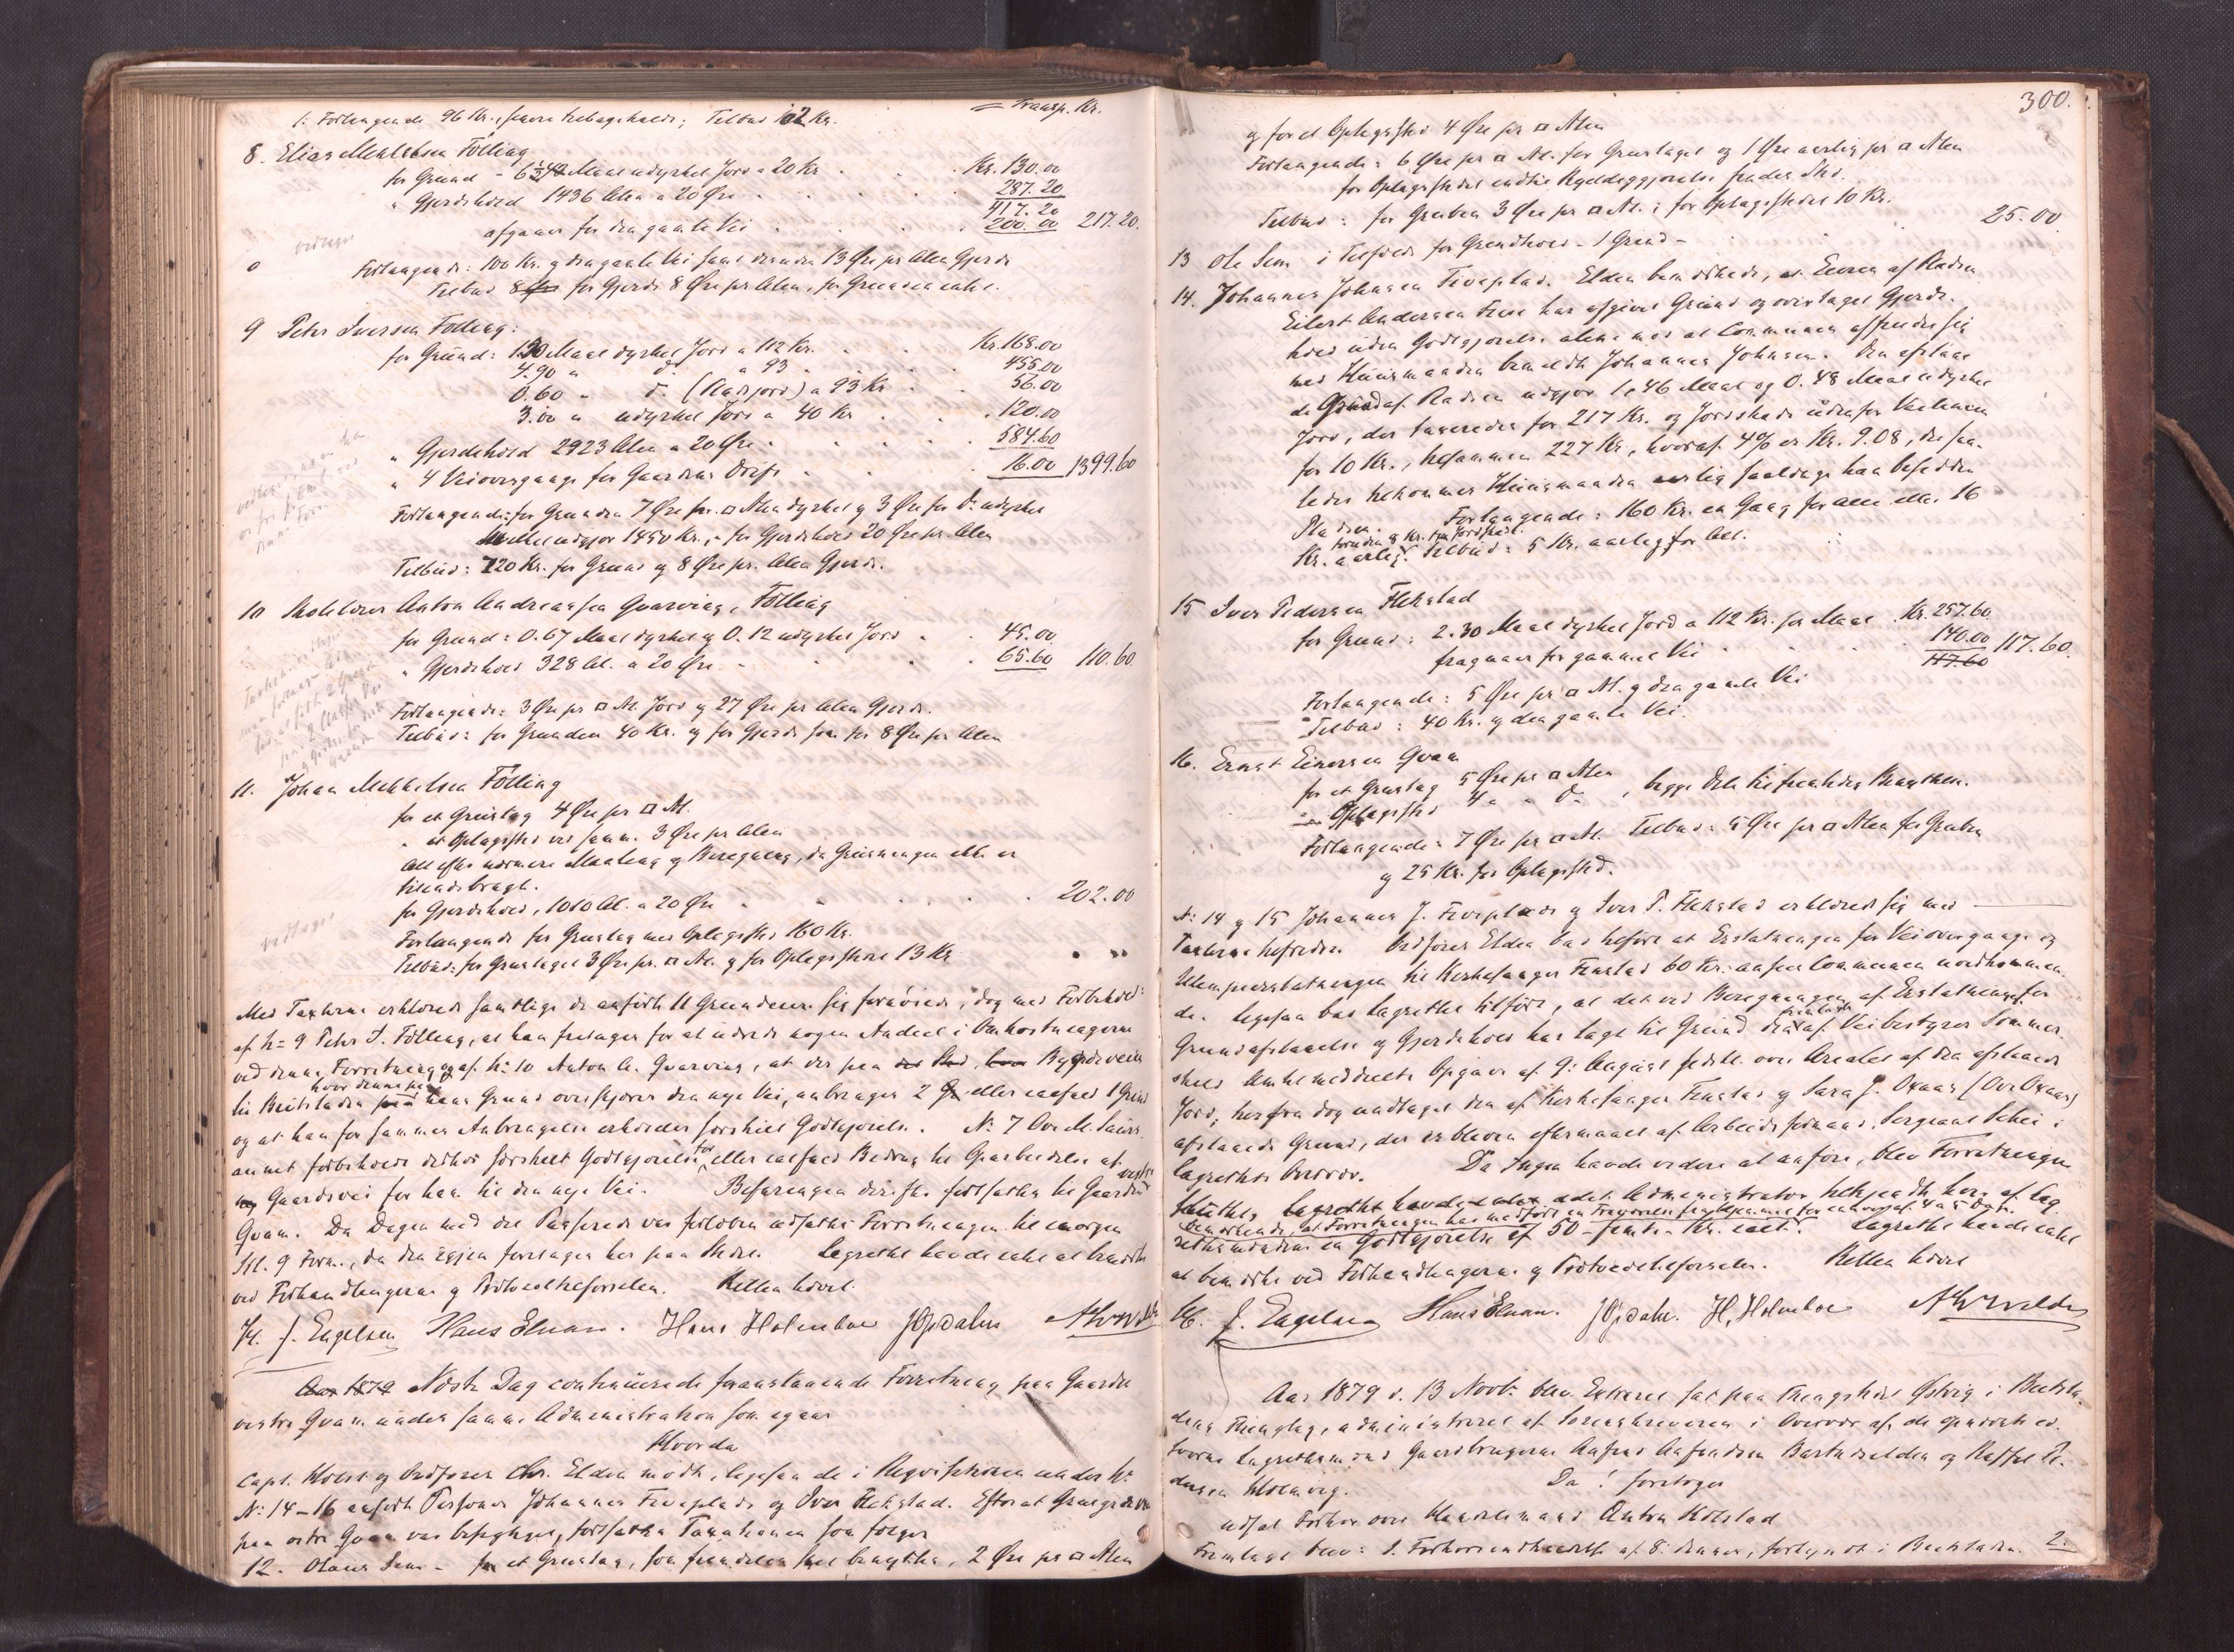 1. Forlangende 96 Kr., senere tilbageholdt; Tilbud 62 Kr.
= Transp. Kr.
8. Elias Mikkelsen Fölling
for Grund - 6 1/2 Maal udyrket Jord a 20 Kr. Kr. 130.00
" Gjerdehold 1436 Alen a 20 Øre 287.20
417.20
afgaaer for den gamle Vei 200.00 217.20.
Forlangende: 100 Kr. og den gamle Vei samt desuden 13 Øre pr Alen Gjerde
Tilbud 8 Øre for Gjerde 8 Øre pr Alen, for Grunden intet.
9 Peter Iversen Fölling:
for Grund: 1.50 Maal dyrket Jord a 112 Kr. Kr. 168.00
4.90 " do a 93 455.00
0.60 " do ( jord) a 93 Kr 56.00
3.00 " udyrket Jord a 40 Kr 120.00
" Gjerdehold 2923 Alen a 20 Øre 584.60
" 4 Veiovergange for Gaardens Drift 16.00 1399.60
Forlangende: for Grunden 7 Øre pr. □ Alen dyrket og 3 Øre for do udyrket
hvilket udgjør 1450 Kr., - for Gjerdehold 20 Øre pr. Alen
Tilbud: 720 Kr. for Grund og 8 Øre pr. Alen Gjerde.
10 Skolelærer Anton Andreassen Qvarving, Fölling
for Grund: 0.67 Maal dyrket og 0.12 udyrket Jord 45.00
" Gjerdehold 328 Al. a 20 Øre 65.60 110.60.
Forlangende: 3 Øre pr □ Al. Jord og 27 Øre pr Alen Gjerde.
Tilbud: for Grunden 40 Kr. og for Gjerde som før 8 Øre pr Alen
11. Johan Mikkelsen Fölling
for et Grustag 4 Øre pr □ Al.
" et Oplagssted ved samme 3 Øre pr Alen
alt efter nærmere Maaling og Beregning, da Grusningen ikke er
tilendebragt.
for Gjerdehold, 1010 Al. a 20 Øre 202.00
Forlangende for Grustag med Oplagssted 160 Kr.
Tilbud: for Grustaget 3 Øre pr. □ Al. og for Oplagsstedet 13 Kr
vedtaget
Med Taxterne erklærede samtlige de anførte 11 Grundeiere sig fornøiede, dog med Forbehold:
af No 9 Peter I. Fölling, at han fritages for at udrede nogen Andeel i Omkostningerne
ved denne Forretning og af No 10 Anton A. Qvarving, at der paa Bygdeveien
til Beitstaden hvor denne paa hans Grund overskjærer den nye Vei, anbringes 2 eller ialfald 1 Grind
og at han for sammes Anbringelse erholder særskilt Godtgjørelse. No 7 Ove M.
annet forbeholdt sig særskilt Godtgjørelse for, eller ialfald Bidrag til Oparbeidelse af
ny Gaardsvei for ham til den nye Vei. Befaringen derefter fortsattes til Gaarden vestre
Qvam. Da Dagen med det Passerede var forløben udsattes Forretningen til imorgen
Kl. 9 Form., da den igjen foretages her paa Stedet. Lagrettet havde intet at bemærke
ved Forhandlingerne og Protocoltilførselen. Retten hævet.
J. Engelsen Hans Elnan. Hans Holmboe J Opdahl
Aar 1879 Næste Dag continuerede foranstaaende Forretning paa Gaarden
vestre Qvam under samme Administration som igaar
Hvorda
Capt. Holst og Ordfører Chr. Elden mødte, ligesaa de i Requisitionen under
No 14-16 anførte Personer Johannes Tveeplads og Iver Flekstad. Efterat Grusgraven
paa østre Qvam var besigtiget, fortsattes Taxationen som følger
12. Olaus Sem - for et Grustag, som fremdeles skal benyttes, 2 Øre pr □ Alen
300.
og for et Oplagssted 4 Øre pr □ Alen
Forlangende: 6 Øre pr □ Al. for Grustaget og 1 Øre aarlig pr □ Alen
for Oplagsstedet indtil Ryddiggjørelse finder Sted.
Tilbud: for Gruben 3 Øre pr □ Al.; for Oplagsstedet 10 Kr.
13 Ole Sem i Tilfælde for Grindhold - 1 Grind - 25.00
14. Johannes Johnsen Tveeplad. Elden bemærkede, at Eieren af Pladsen
Eilert Andersen har afgivet Grund og overtaget Gjerde-
hold uden Godtgjørelse alene mod at Communen affinder sig
med Huusmanden bemeldte Johannes Johnsen. Den afstaae-
de Grund af Pladsen udgjør 1,46 Maal og 0.48 Maal udyrket
Jord, der taxeredes for 217 Kr. og Jordskade udenfor Veilinien
for 10 Kr., tilsammen 227 Kr., hvoraf 4% er Kr. 9.08, der saa-
ledes tilkommer Huusmanden aarlig saalænge han besidder
Pladsen. Forlangende: 160 Kr. en Gang for alle eller 16
Kr. aarlig foruden 8 Kr. for Jordskade. Tilbud: 5 Kr. aarlig for Alt.
15 Iver Pedersen Flekstad
for Grund: 2.30 Maal dyrket Jord a 112 Kr. pr Maal Kr. 257.60
fragaaer for gammel Vei 140.00 117.60.
117.60
Forlangende: 5 Øre pr □ Al. og den gamle Vei
Tilbud: 40 Kr. og den gamle Vei.
16. Ernst Einersen Qvam
for et Grustag 5 Øre pr □ Alen
" Oplagssted 4 " " do, begge Dele til fremtidig Benyttelse.
Forlangende: 7 Øre pr □ Al. Tilbud: 5 Øre pr □ Alen for Gruben
og 25 Kr. for Oplagssted.
No 14 og 15 Johannes J. Tveeplads og Iver P. Flekstad erklærede sig med
Taxterne tilfredse. Ordfører Elden bad tilført at Erstatningen for Veiovergange og
Ulempeerstatningen til Kirkesanger Finstad 60 Kr. ansees Communen uvedkommen-
de. Ligesaa bad Lagrettet tilført, at det ved Beregningen af Erstatning for
Grundafstaaelse og Gjerdehold har lagt til Grund den fremlagte af Veibestyrer Sommer-
skield Amtet meddeelte Opgave af 9: August sidstl. over Arealet af den afstaaede
Jord, herfra dog undtaget den af Kirkesanger Finstad og Sara J. Oxaas (Ove Oxaas)
afstaaede Grund, der er bleven eftermaalt af Arbeidsformand, Sergeant Schei i
Lagrettets Overvær. Da Ingen havde videre at anføre, blev Forretningen
sluttet. Lagrettet havde
bemærkende, at Forretningen har medført en Fraværelse fra Hjemmet for enhver af 4 a 5 Dage.
rettesmændene en Godtgjørelse af 50 - femti - Kr. ialt. Lagrettet havde intet
at bemærke ved Forhandlingerne og Protocoltilførselen. Retten hævet
J. Engelsen Hans Elnan. J Opdahl. H. Holmboe
Aar 1879 d. 13 Novbr. blev Extraret sat paa Thingstedet Østvig i Beitsta-
dens Thinglag, administreret af Sorenskriveren i Overvær af de opnævnte ed-
svorne Lagrettesmænd Gaardbrugerne Anfind Anfindsen Bartneselden og Kasper Pe-
dersen Holmvig. Da! foretoges
udsat Forhør over Handelsmand Anton Kolstad
Fremlagt blev: 1. Forhørsindkaldelse af 8: dennes, forkyndt i Beitstaden. 2.